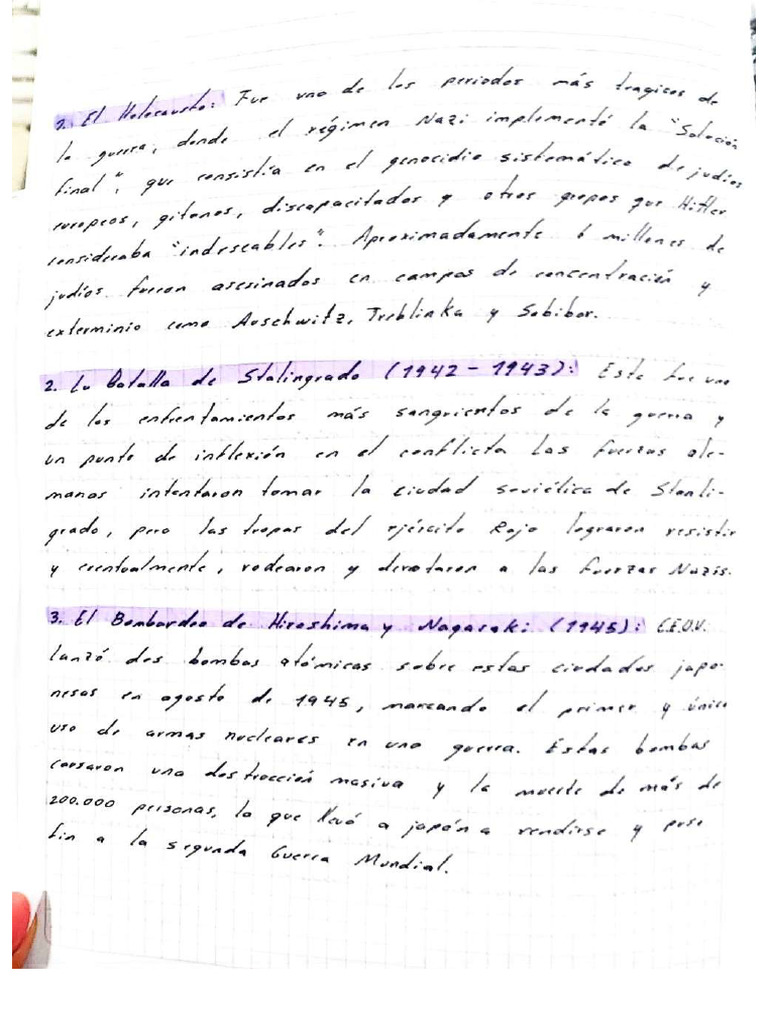 1. El Holocausto: Fue uno de los periodos más tragicos de
la guerra, donde el régimen Nazi implementó la "Solución
final", que consistía en el genocidio sistemático de judíos
europeos, gitanos, discapacitados y otros grupos que Hitler
consideraba "indeseables". Aproximadamente 6 millones de
judíos fueron asesinados en campos de concentración y
exterminio como Auschwitz, Treblinka y Sobibor.
2. La Batalla de Stalingrado (1942 - 1943): Este fue uno
de los enfrentamientos más sangrientos de la guerra y
un punto de inflexión en el conflicto Las fuerzas ale-
manas intentaron tomar la ciudad soviética de Stanli-
grado, pero las tropas del ejército Rojo lograron resistir
y eventualmente, rodearon y derrotaron a las fuerzas Nazis.
3. El Bombardeo de Hiroshima y Nagasaki (1945):
lanzó dos bombas atómicas sobre estas ciudades japo-
nesas en agosto de 1945, marcando el primer y único
uso de armas nucleares en una guerra. Estas bombas
causaron una destrucción masiva y la muerte de más de
200.000 personas, lo que llevó a japón a rendirse y puso
fin a la segunda Guerra Mundial.